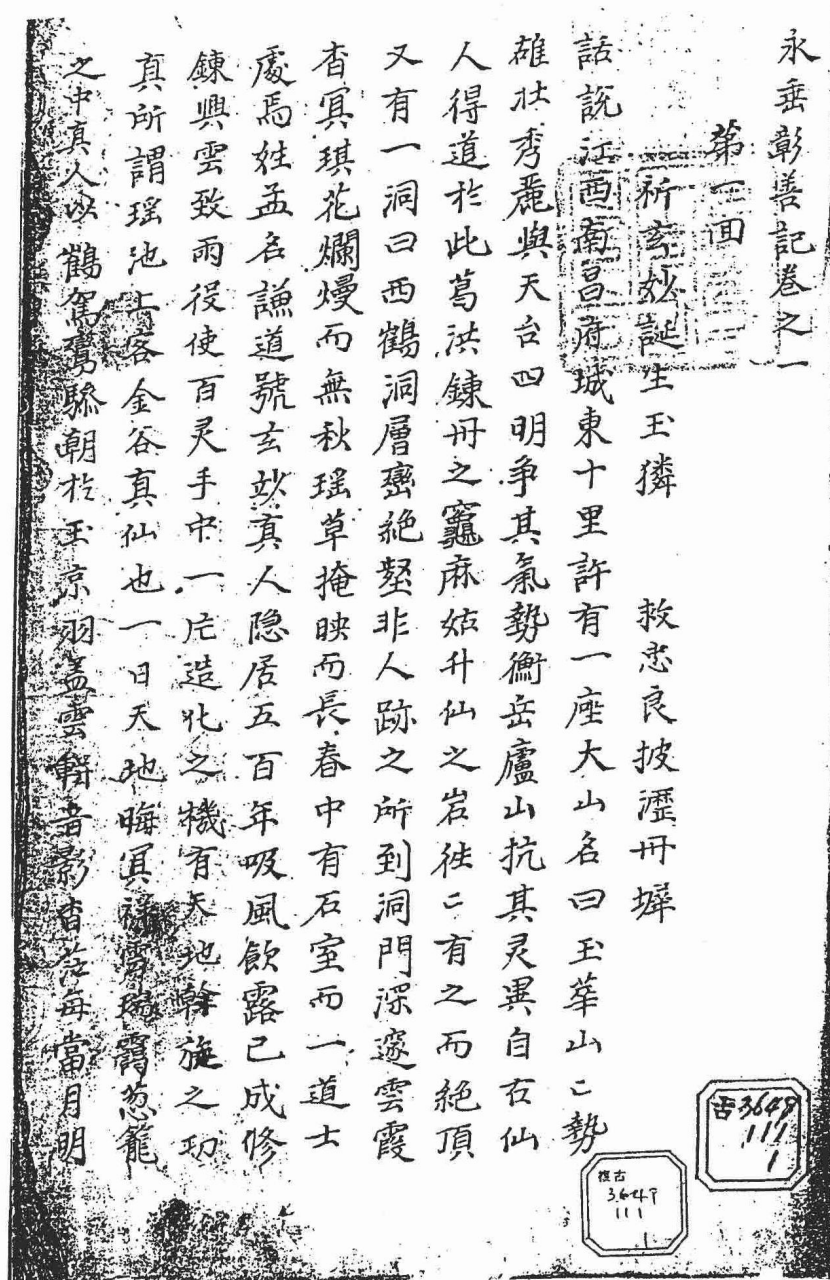 永垂彰善記卷之一
第一回
祈玄妙誕生玉獜 救忠良披瀝丹墀
話說江西南昌府城東十里許有一座大山名曰玉華山二勢
雄壯秀麗與天台四明爭其氣勢衡岳廬山抗其灵異自古仙
人得道於此葛洪鍊丹之竈麻姑升仙之岩徃二有之而絶頂
又有一洞曰西鶴洞層巒絶壑非人跡之所到洞門深邃雲霞
杳冥琪花爛熳而無秋瑶草掩映而長春中有石室而一道士
處焉姓孟名謙道號玄妙真人隐居五百年吸風飮露已成修
鍊興雲致雨役使百灵手中一片造化之機有天地斡旋之功
真所謂瑶池上客金谷真仙也一日天地晦冥祿霄瑞靄葱籠
之中真人以鶴駕鸞驂朝於玉京羽盖雲輧音影杳茫每當月明
古3649
111
1
複古
3649
111
1